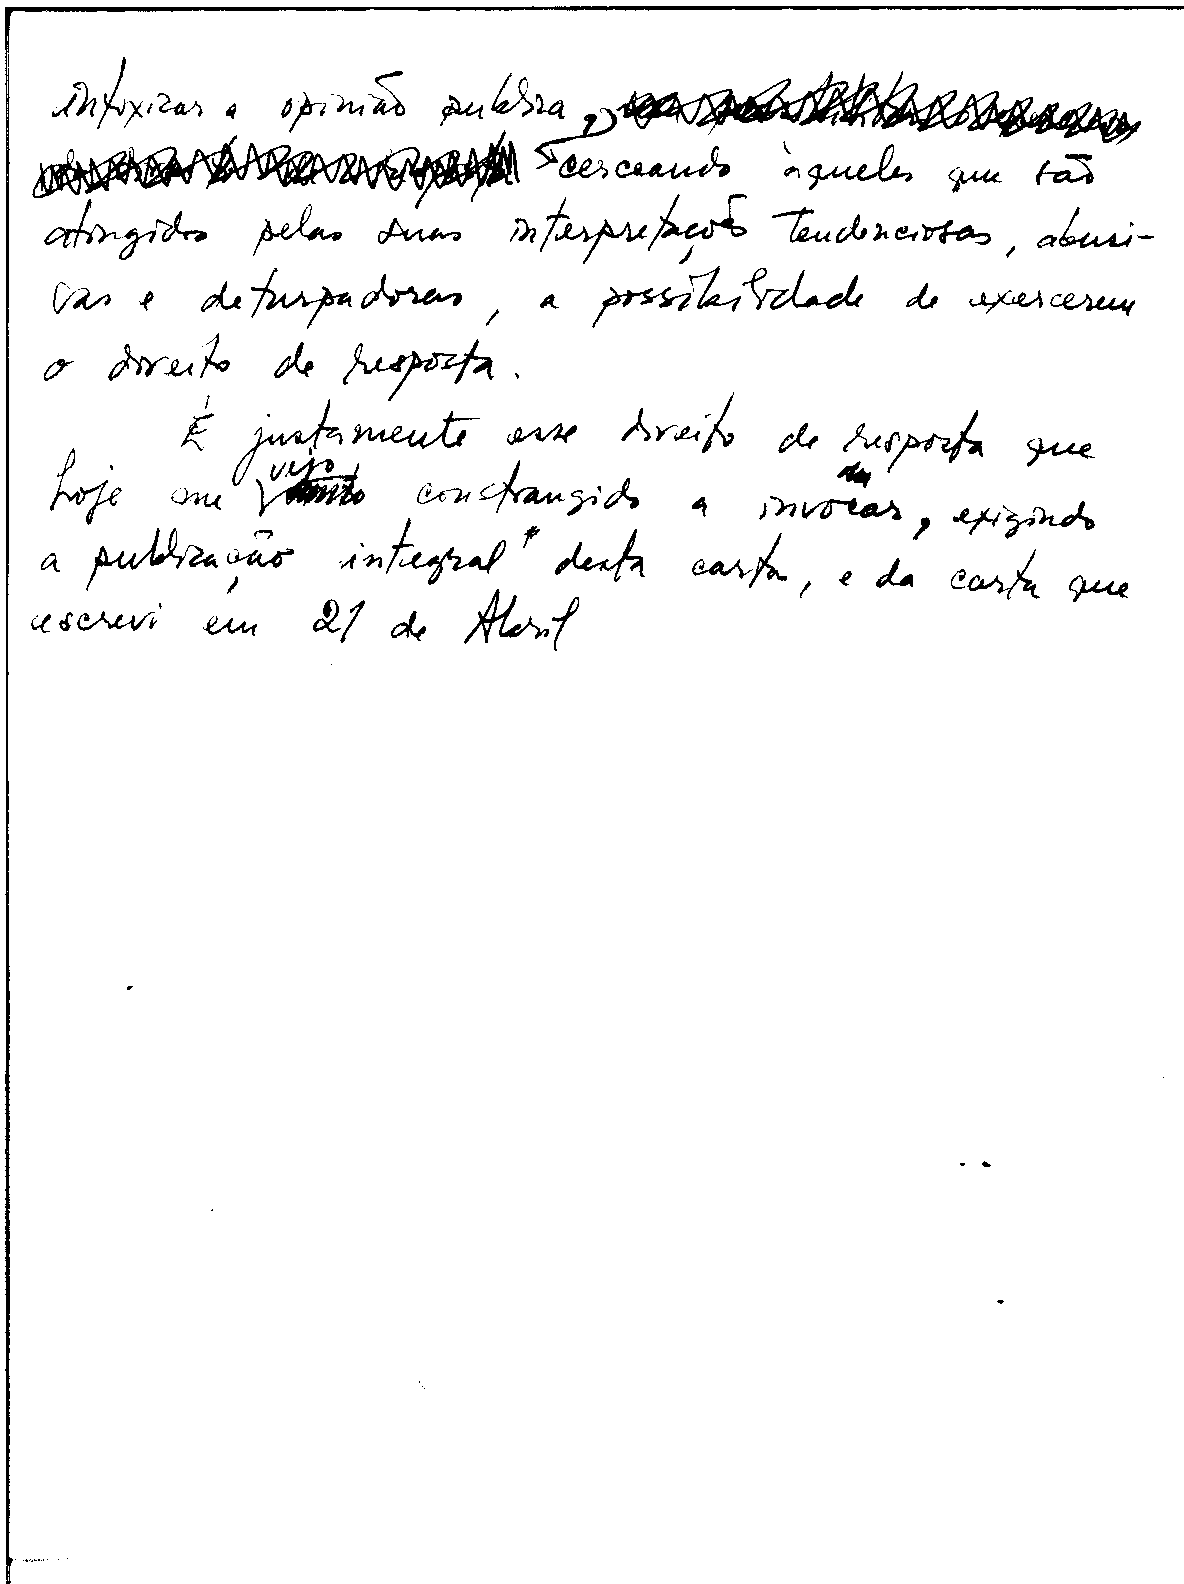 intoxicar a opinião publica,
cerceando àqueles que são
atingidos pelas suas interpretações tendenciosas, abusi-
vas e deturpadoras, a possibilidade de exercerem
o direito de resposta.
É justamente esse direito de resposta que
hoje me vejo constrangido a invocar, exigindo
a publicação integral desta carta, e da carta que
escrevi em 21 de Abril